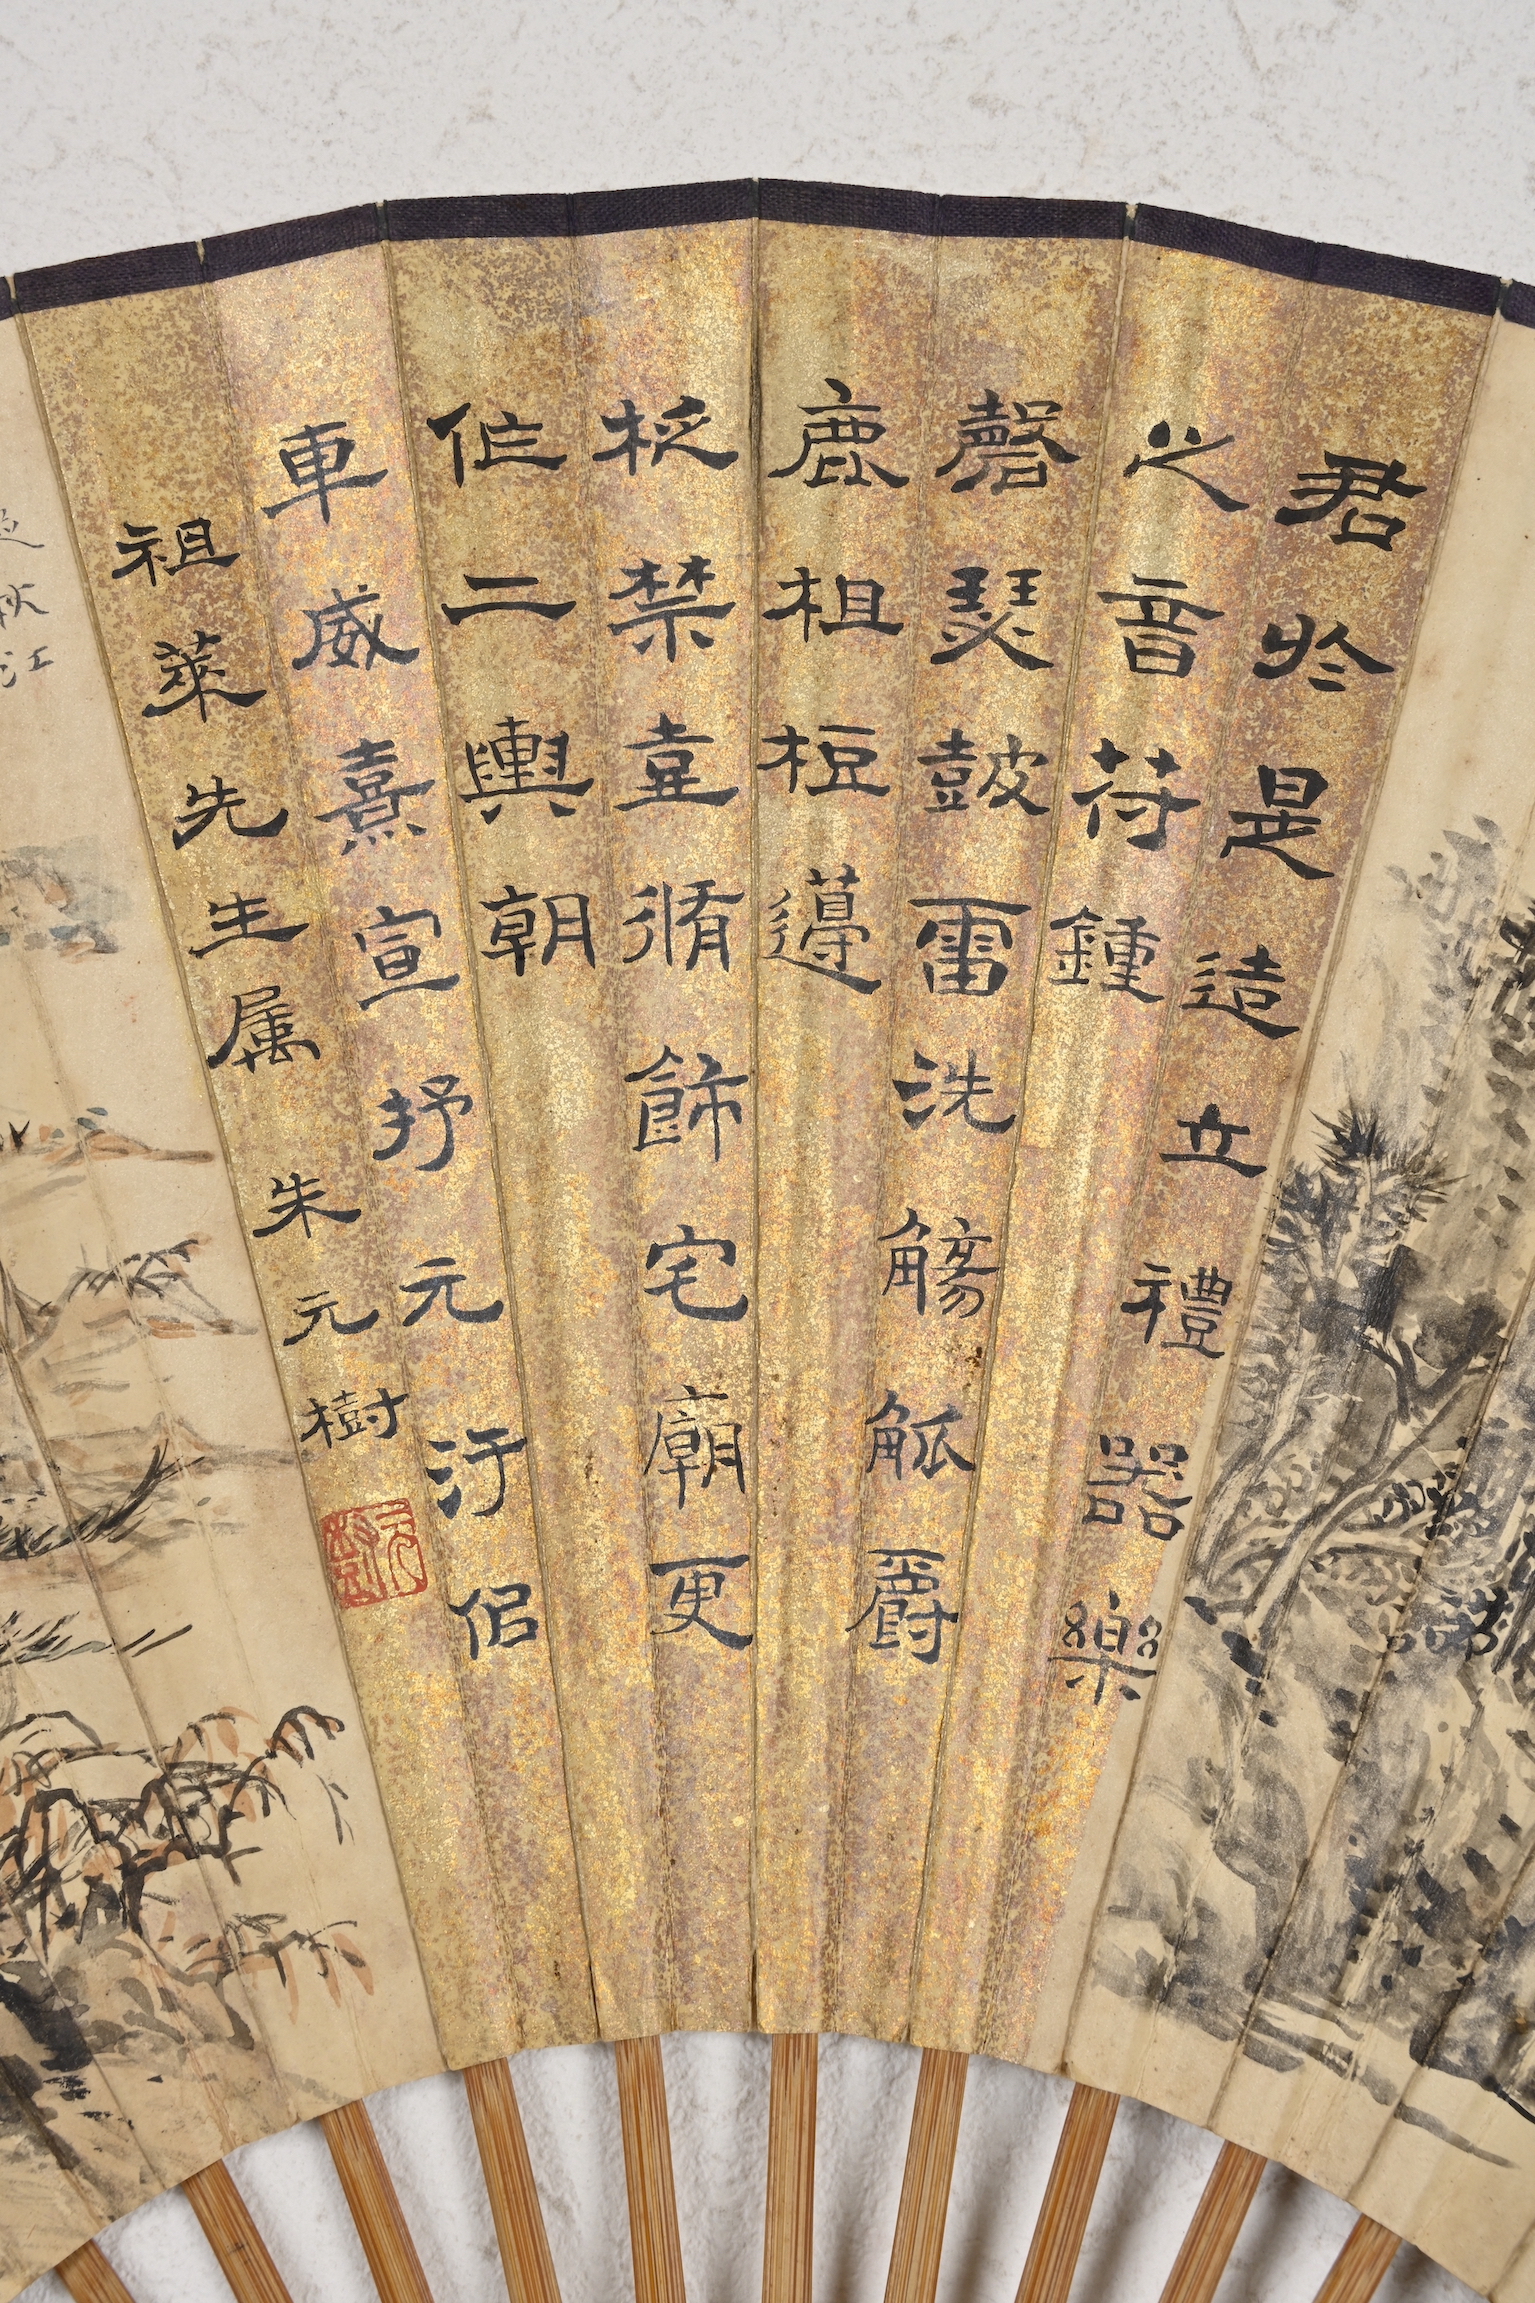 君於是造立禮器樂
之音苻鍾
磬瑟鼓雷洗觴觚爵
鹿柤梪籩
柉禁壺脩飾宅廟更
作二輿朝
車威熹宣抒元汙
祖萊先生属 朱元樹
元樹
秋江